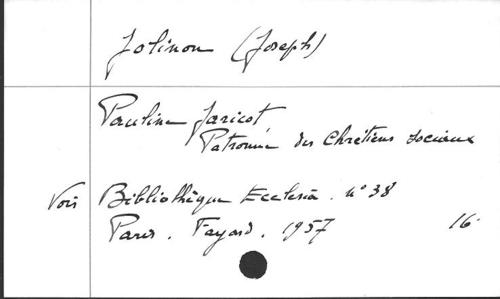 Jolinon (Joseph)
Pauline Jaricot
Patronne des Chrétiens sociaux
Voir Bibliothèque Ecclesia. n° 38
Paris. Fayard. 1957 16-